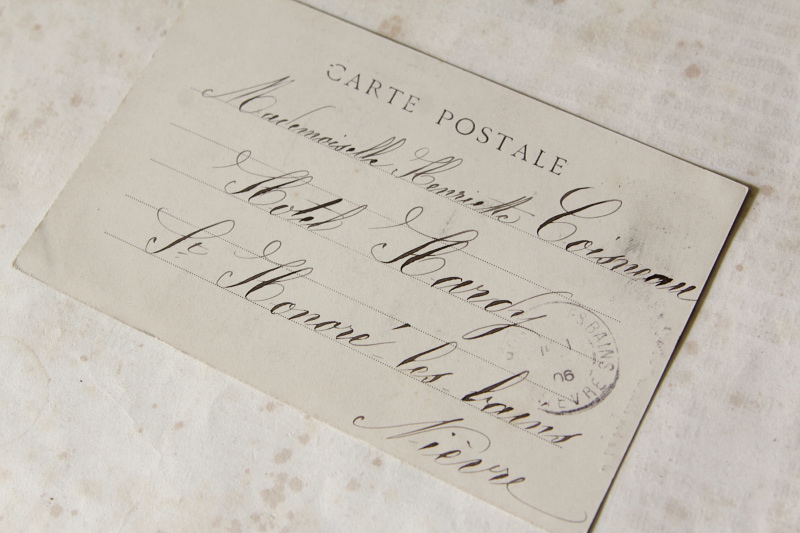 CARTE POSTALE
Mademoiselle Henriette Coisneau
Hotel Hardy
St Honoré les bains
Nièvre
SBAINS
06
IÈVRE